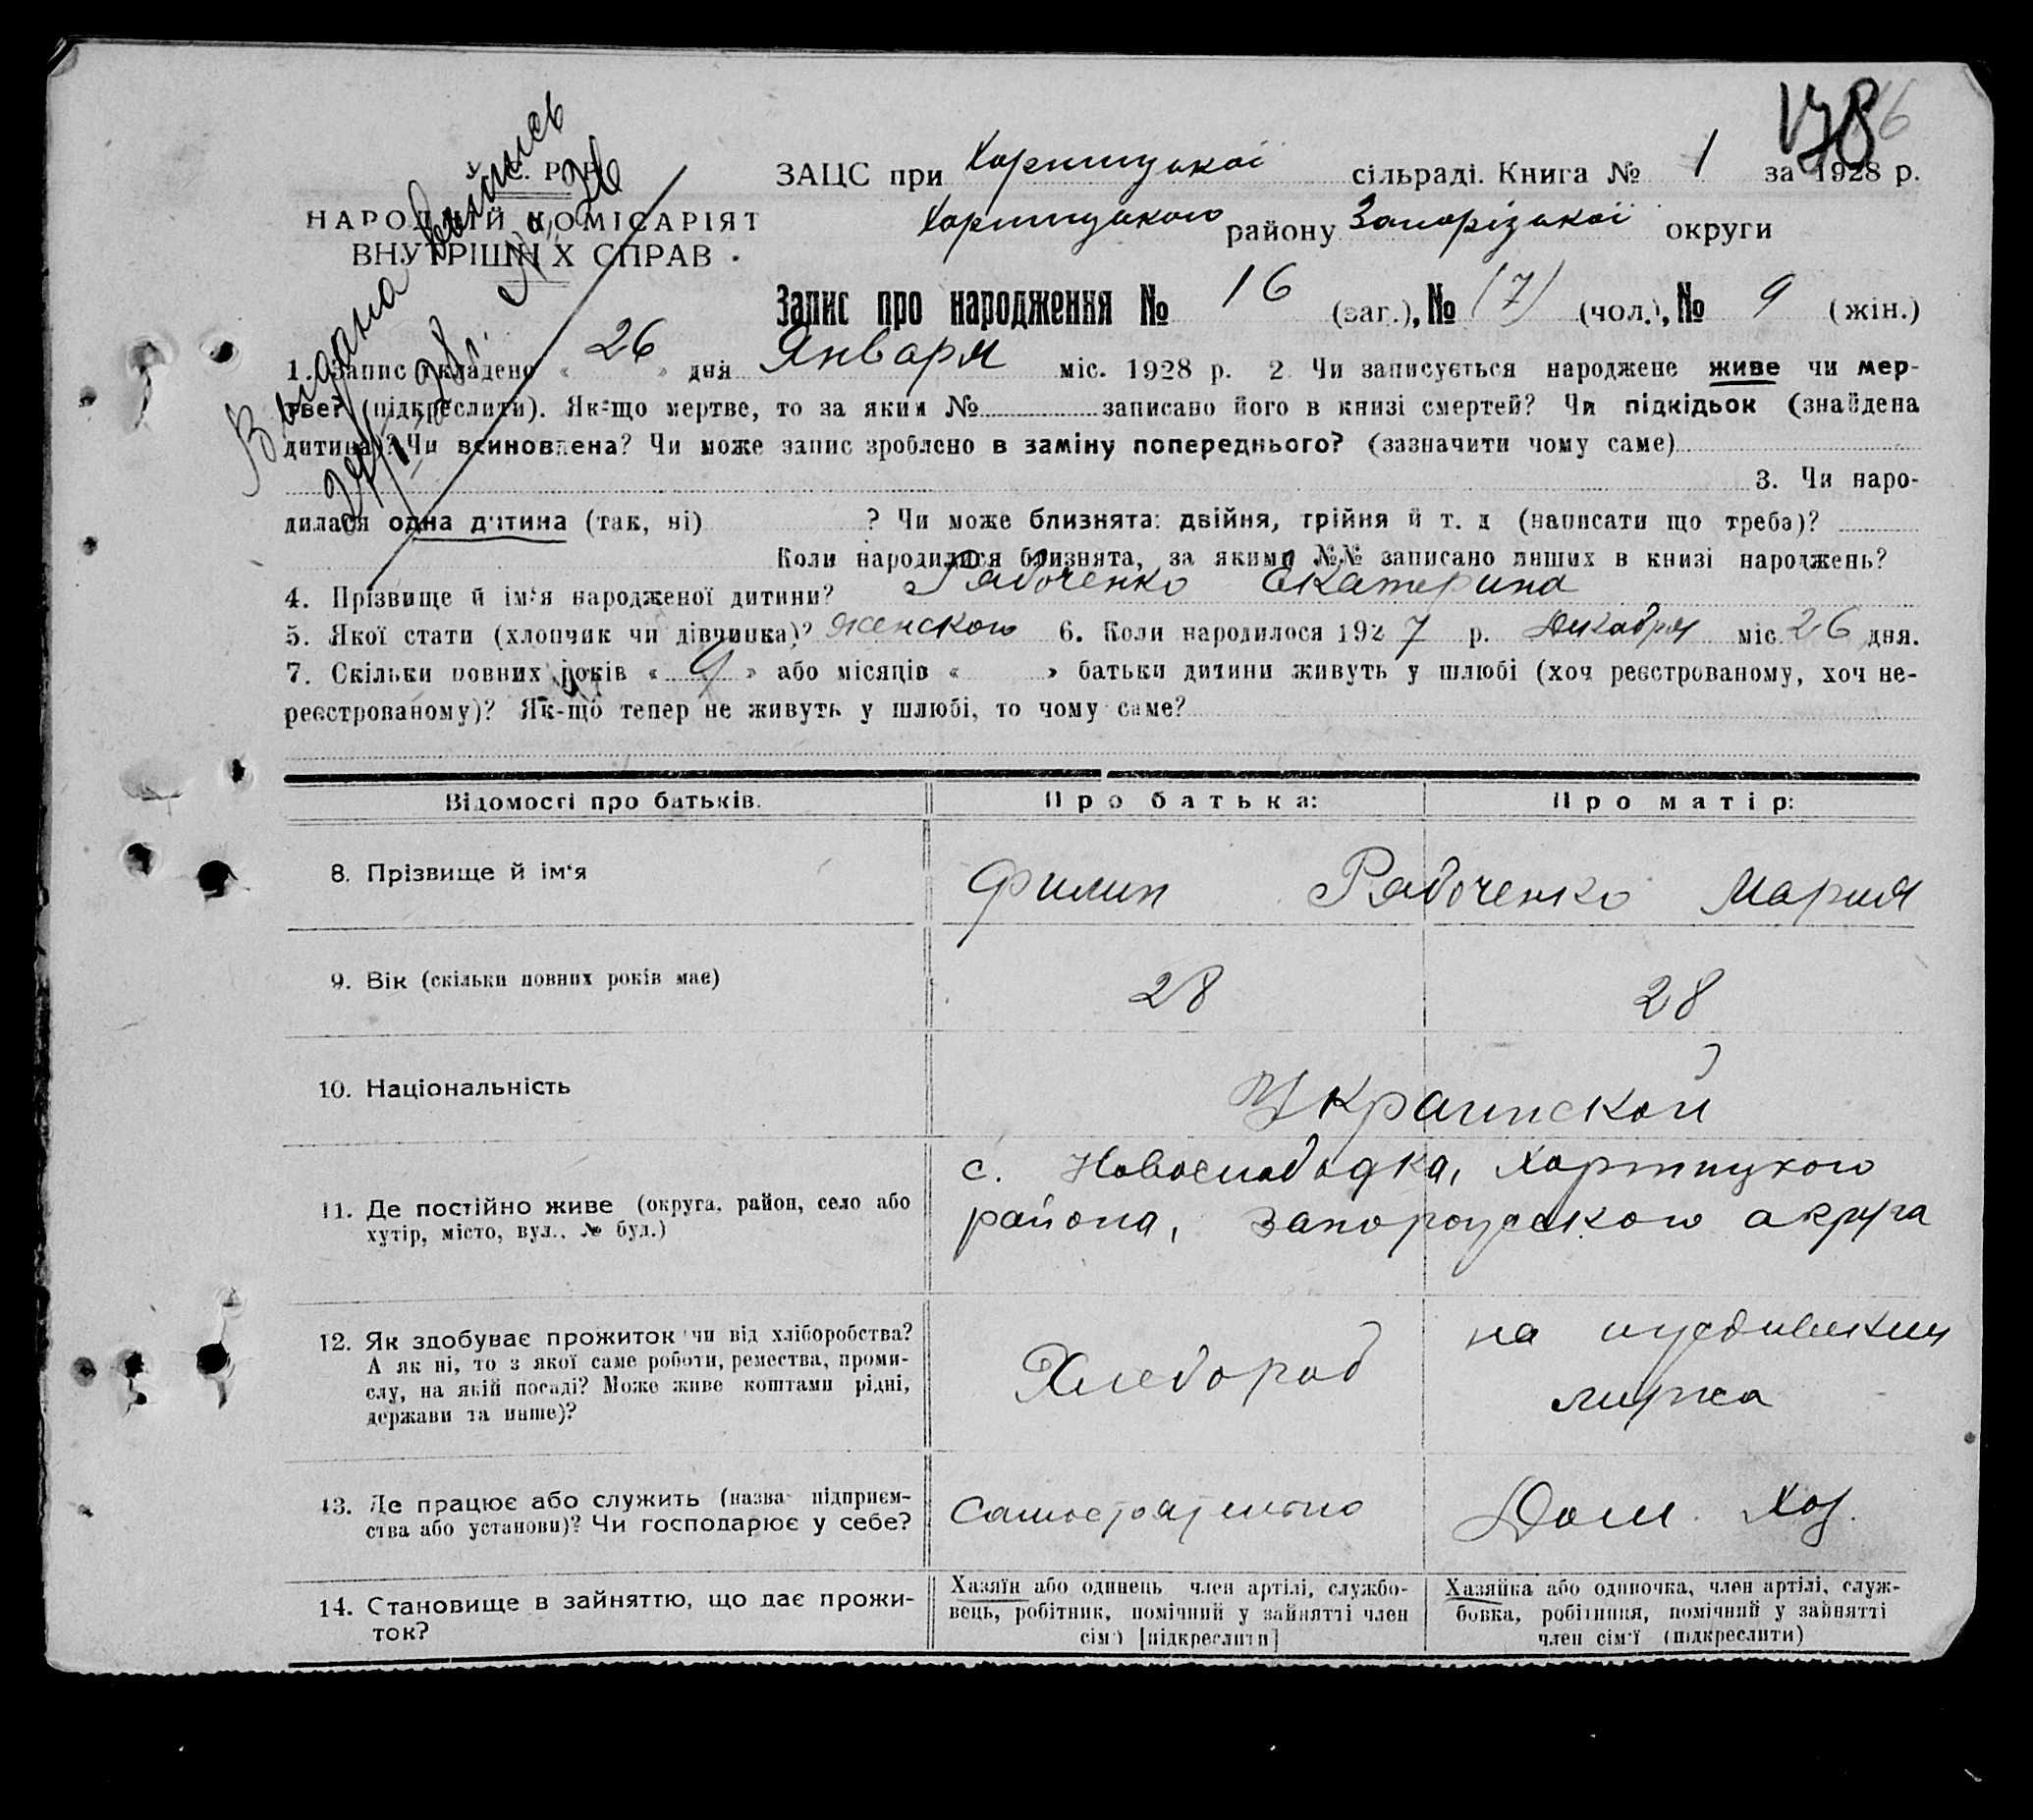 178
У. С. Р. Р.
НАРОДНІЙ КОМІСАРІЯТ
ВНУТРІШНІХ СПРАВ
Видана выпись
№ 26
ЗАЦС при Хортицької сільраді. Книга № 1 за 1928 р.
Хортицького району Запорізької округи
Запис про народження № 16 (заг.), № (7) (чол.), № 9 (жін.)
1. Запис складено « 26 » дня Января міс. 1928 р. 2 Чи записується народжене живе чи мер-
тве? (підкреслити). Як-що мертве, то за яким № записано його в книзі смертей? Чи підкідьок (знайдена
дитина)? Чи всиновлена? Чи може запис зроблено в заміну попереднього? (зазначити чому саме)
3. Чи наро-
дилася одна дитина (так, ні) ? Чи може близнята: двійня, трійня й т. д (написати що треба)?
Коли народилися близнята, за якими №№ записано инших в книзі народжень?
4. Прізвище й ім'я народженої дитини? Рябоченко Екатерина
5. Якої стати (хлопчик чи дівчинка)? женского 6. Коли народилося 1927 р. Декабря міс. 26 дня.
7. Скільки повних років « 9 » або місяців « » батьки дитини живуть у шлюбі (хоч реєстрованому, хоч не-
реєстрованому)? Як-що тепер не живуть у шлюбі, то чому саме?
Відомості про батьків. Про батька: Про матір:
8. Прізвище й ім'я Филип Рябоченко Мария
9. Вік (скільки повних років має) 28 28
10. Національність Украинской
11. Де постійно живе (округа, район, село або
хутір, місто, вул., № буд.)
с. Новослободка, Хортицкого
района, Запорожского округа
12. Як здобуває прожиток чи від хліборобства?
А як ні, то з якої саме роботи, ремества, проми-
слу, на якій посаді? Може живе коштами рідні,
держави та инше)?
Хлебороб
на иждивении
мужа
13. Де працює або служить (назва підприєм-
ства або установи)? Чи господарює у себе?
Самостоятельно Дом. Хоз.
14. Становище в зайняттю, що дає прожи-
ток?
Хазяїн або одинець член артілі, службо-
вець, робітник, помічний у зайнятті член
сім'ї [підкреслити]
Хазяйка або одиночка, член артілі, служ-
бовка, робітниця, помічний у зайнятті
член сім'ї (підкреслити)